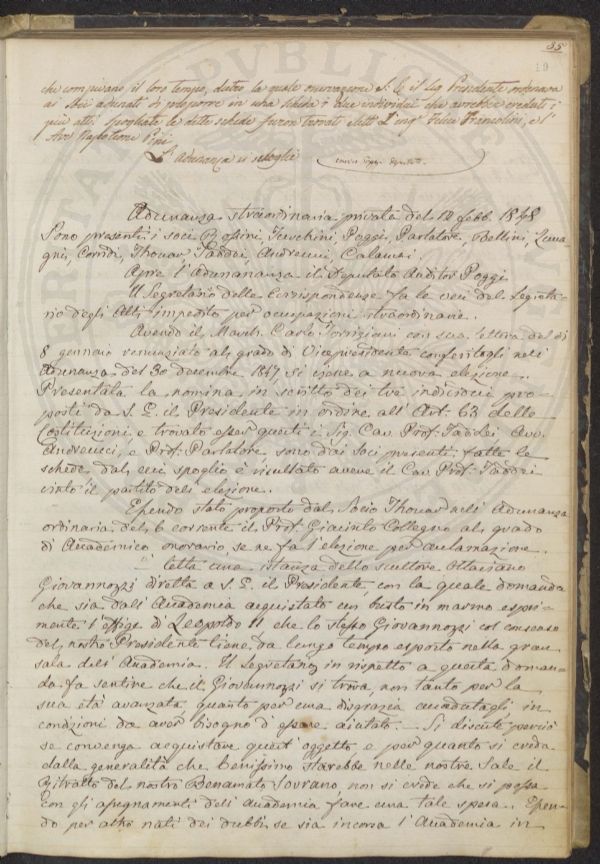 35
19
che compivano il loro tempo, dietro la quale osservazione S. E. il Sig. Presidente ordinava
ai Soci adunati di proporre in una scheda i due individui che avrebbe creduti i
più atti spogliate le dette schede furon trovati eletti L'ing.e Felice Francolini, e l'
Avv. Napoleone Pini.
L'adunanza si scioglie
Adunanza straordinaria privata del 12 febb. 1848
Sono presenti i soci Rosini, Poggi, Parlatore, Bellini,
Corridi, Thouar, Taddei, Andreucci, Calamai.
Apre l'adunananza il Deputato Auditor Poggi
Il Segretario delle Corrispondenze fa le veci del Segreta-
rio degli Atti impedito per occupazioni straordinarie.
Avendo il March. Carlo Torrigiani con sua lettera del dì
8 gennaio renunziato al grado di Vicepresidente conferitogli nell'
Adunanza del 30 decembre 1847, si viene a nuova elezione.
Presentata la nomina in scritto dei tre individui pro-
posti da S. E. il Presidente in ordine all'Art. 63 delle
Costituzioni e trovato esser questi i Sig. Cav. Prof. Taddei, Avv.
Andreucci, e Prof. Parlatore, sono dai Soci presenti fatte le
schede, dal cui spoglio è risultato avere il Cav. Prof. Taddei
vinto il partito dell'elezione.
Essendo stato proposto dal Socio Thouar nell'Adunanza
ordinaria del 6 corrente il Prof. Giacinto Collegno al grado
di Accademico onorario, se ne fa l'elezione per acclamazione.
Letta una istanza dello scultore Ottaviano
Giovannozzi diretta a S. E. il Presidente, con la quale domanda
che sia dall'Accademia acquistato un busto in marmo espri-
mente l'effige di Leopoldo II che lo stesso Giovannozzi col consenso
del nostro Presidente tiene da lungo tempo esposto nella gran
sala dell'Accademia. Il Segretario in rispetto a questa doman-
da fa sentire che il Giovannozzi si trova, non tanto per la
sua età avanzata quanto per una disgrazia accadutagli, in
condizioni da aver bisogno d'essere aiutato. Si discute perciò
se convenga acquistare quest'oggetto, e per quanto si creda
dalla generalità che benissimo starebbe nelle nostre Sale il
Ritratto del nostro Benamato Sovrano, non si crede che si possa
con gli assegnamenti dell'Accademia fare una tale spesa. Essen-
do per altro nati dei dubbi se sia incorsa l'Accademia in